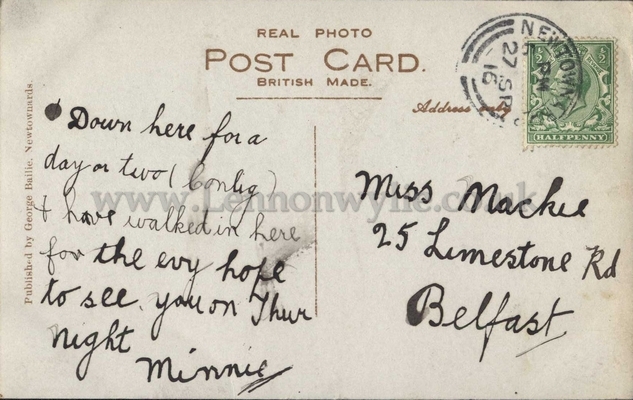 REAL PHOTO
POST CARD.
BRITISH MADE.
Address only
NEWTOWN
5 PM
27 SP
16
HALFPENNY
Published by George Bailie, Newtownards.
Down here for a
day or two (Conlig)
& have walked in here
for the evy hope
to see you on Thur
night
Minnie
Miss Mackie
25 Limestone Rd
Belfast
www.Lennonwylie.co.uk